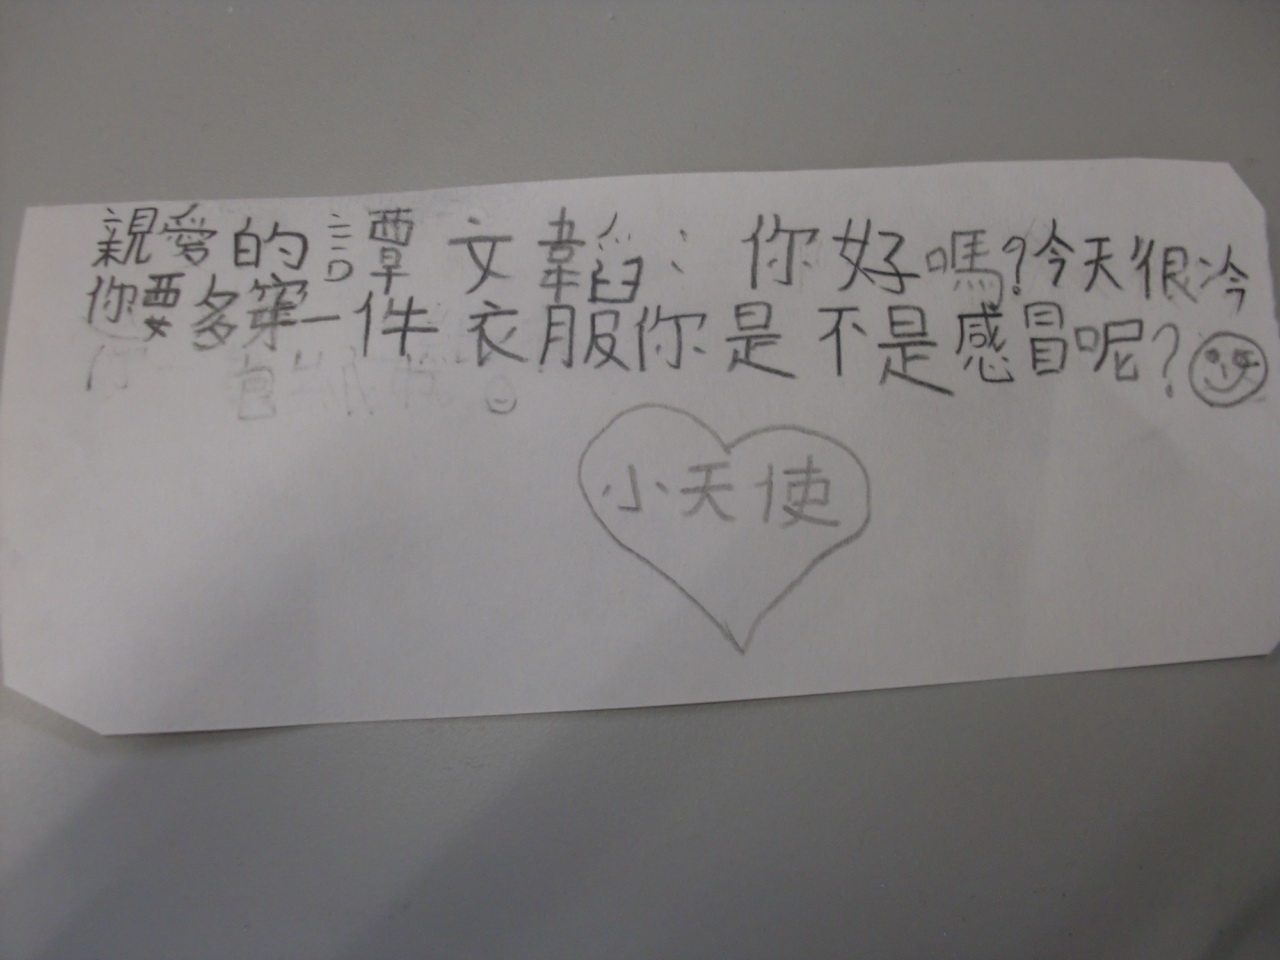 親愛的譚文韜：你好嗎?今天很冷
你要多穿一件衣服你是不是感冒呢?
小天使